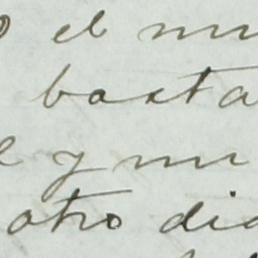 el mu
basta
y mu
otro dia